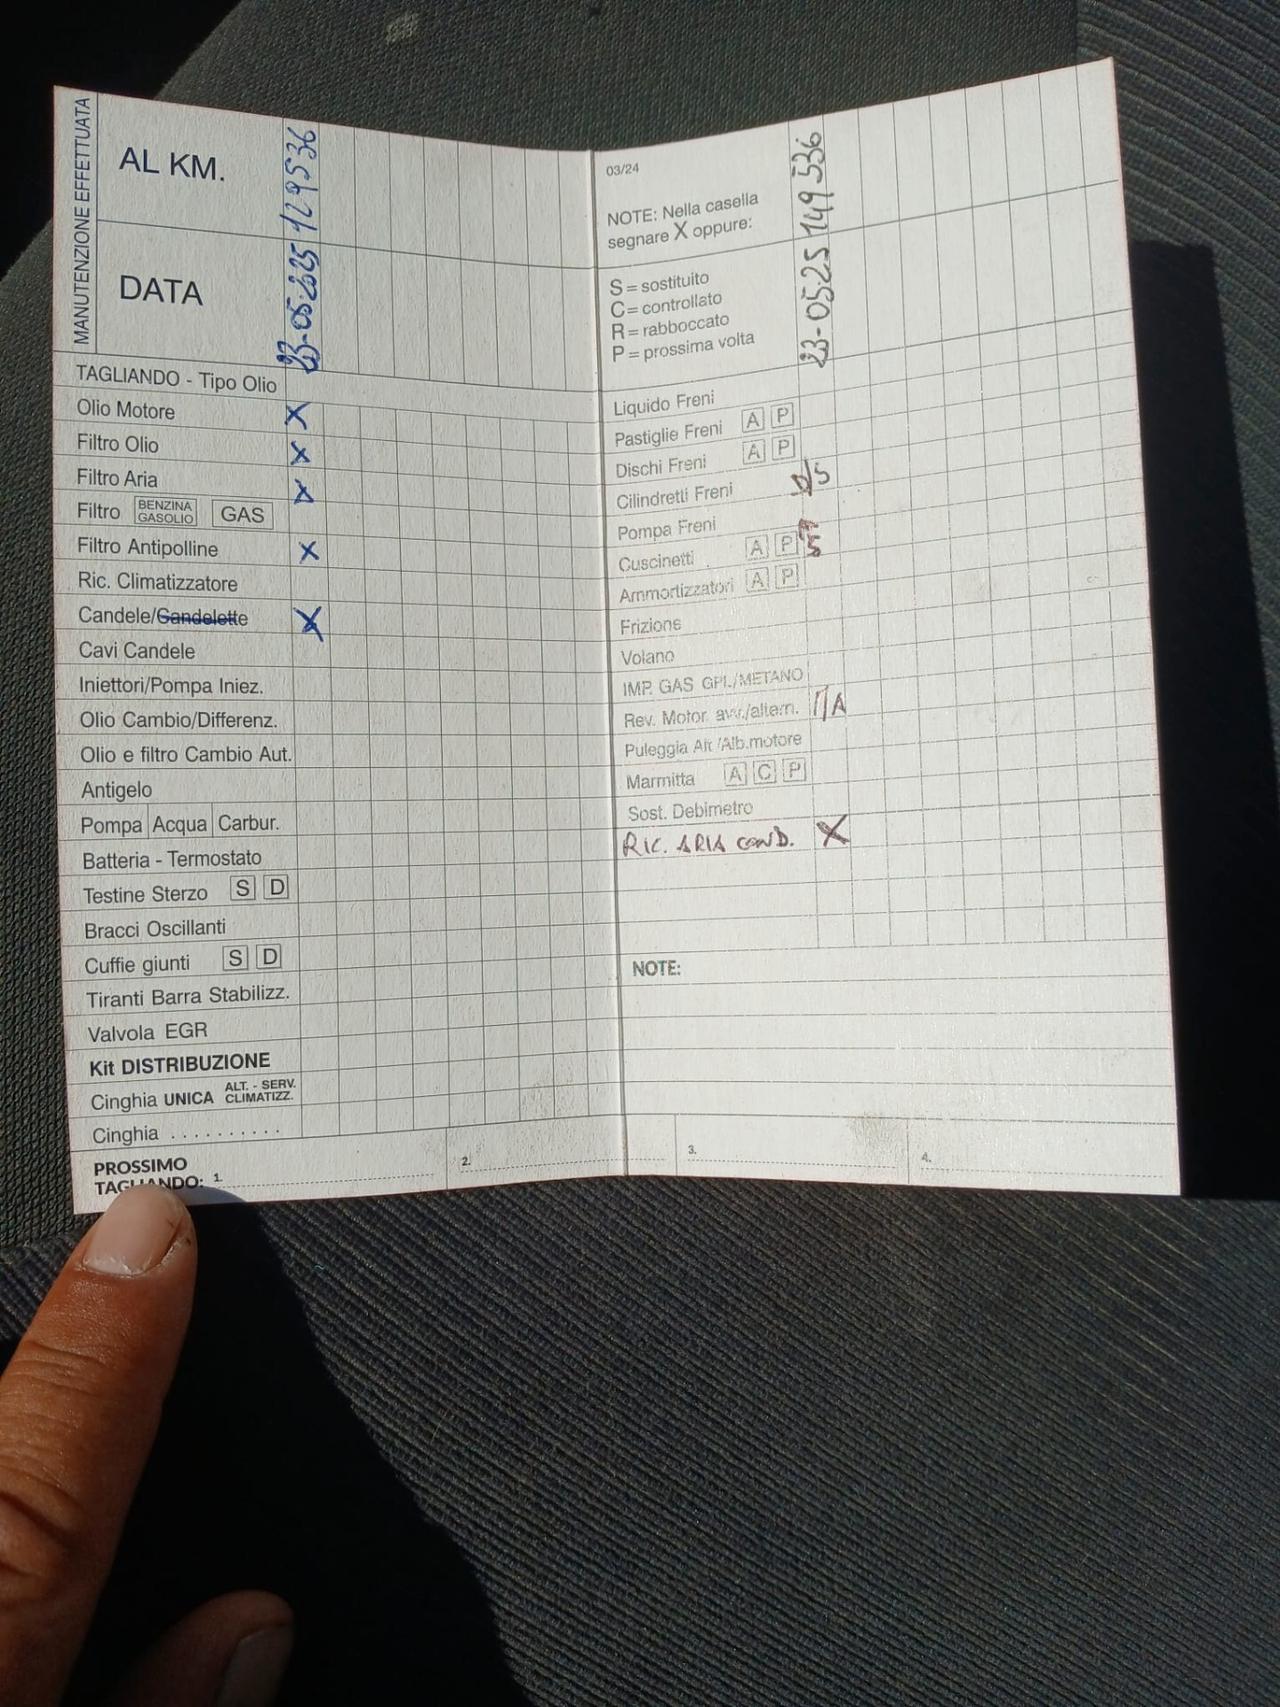 MANUTENZIONE EFFETTUATA
AL KM. 129536
DATA 23-05-2025
TAGLIANDO - Tipo Olio
Olio Motore X
Filtro Olio X
Filtro Aria X
Filtro BENZINA GASOLIO GAS
Filtro Antipolline X
Ric. Climatizzatore
Candele/Candelette X
Cavi Candele
Iniettori/Pompa Iniez.
Olio Cambio/Differenz.
Olio e filtro Cambio Aut.
Antigelo
Pompa Acqua Carbur.
Batteria - Termostato
Testine Sterzo S D
Bracci Oscillanti
Cuffie giunti S D
Tiranti Barra Stabilizz.
Valvola EGR
Kit DISTRIBUZIONE
Cinghia UNICA ALT. - SERV. CLIMATIZZ.
Cinghia . . . . . . . . . .
PROSSIMO
TAGLIANDO: 1.
2.
03/24
149536
NOTE: Nella casella
segnare X oppure:
23-05-25
S = sostituito
C = controllato
R = rabboccato
P = prossima volta
Liquido Freni
Pastiglie Freni A P
Dischi Freni A P
Cilindretti Freni D/S
Pompa Freni
Cuscinetti A P S
Ammortizzatori A P
Frizione
Volano
IMP. GAS GPL/METANO
Rev. Motor. avv./altern.
Puleggia Alt./Alb.motore
Marmitta A C P
Sost. Debimetro
RIC. ARIA COND. X
NOTE:
3.
4.